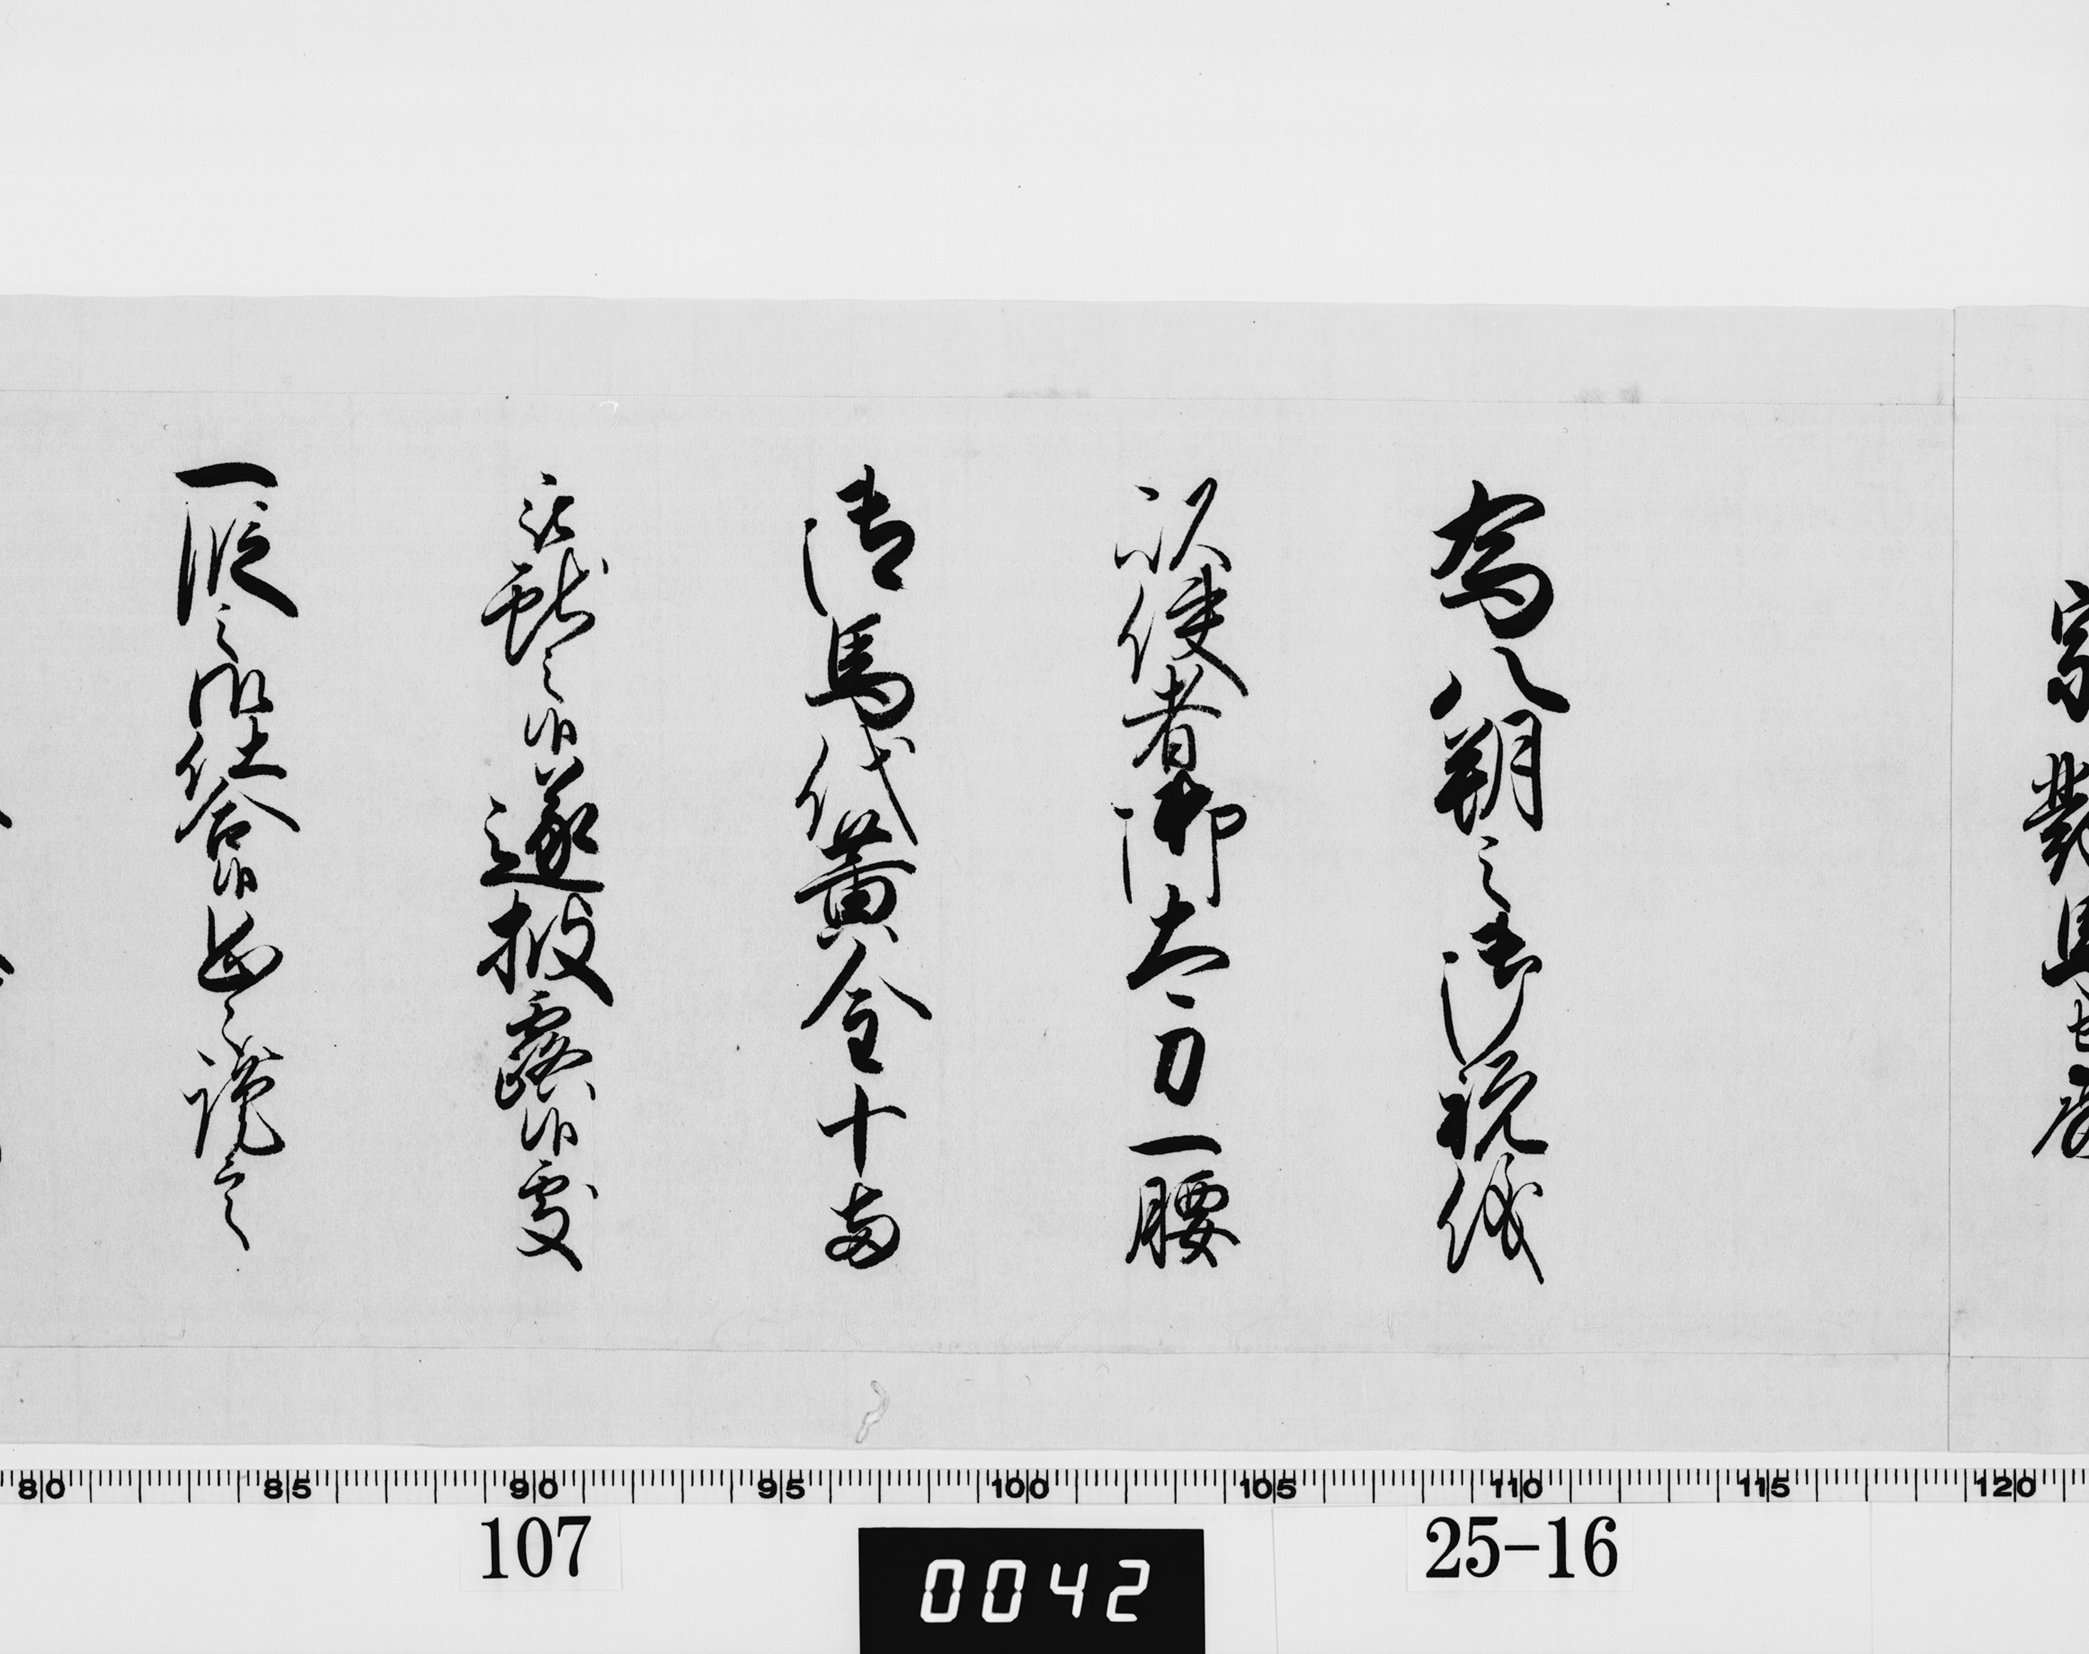 宗對馬守殿
為八朔之御祝儀
以使者御太刀一腰
御馬代黄金十両
被獻之候遂披露候處
一段之御仕合候恐々謹言
80 85 90 95 100 105 110 115 120
107
0042
25-16